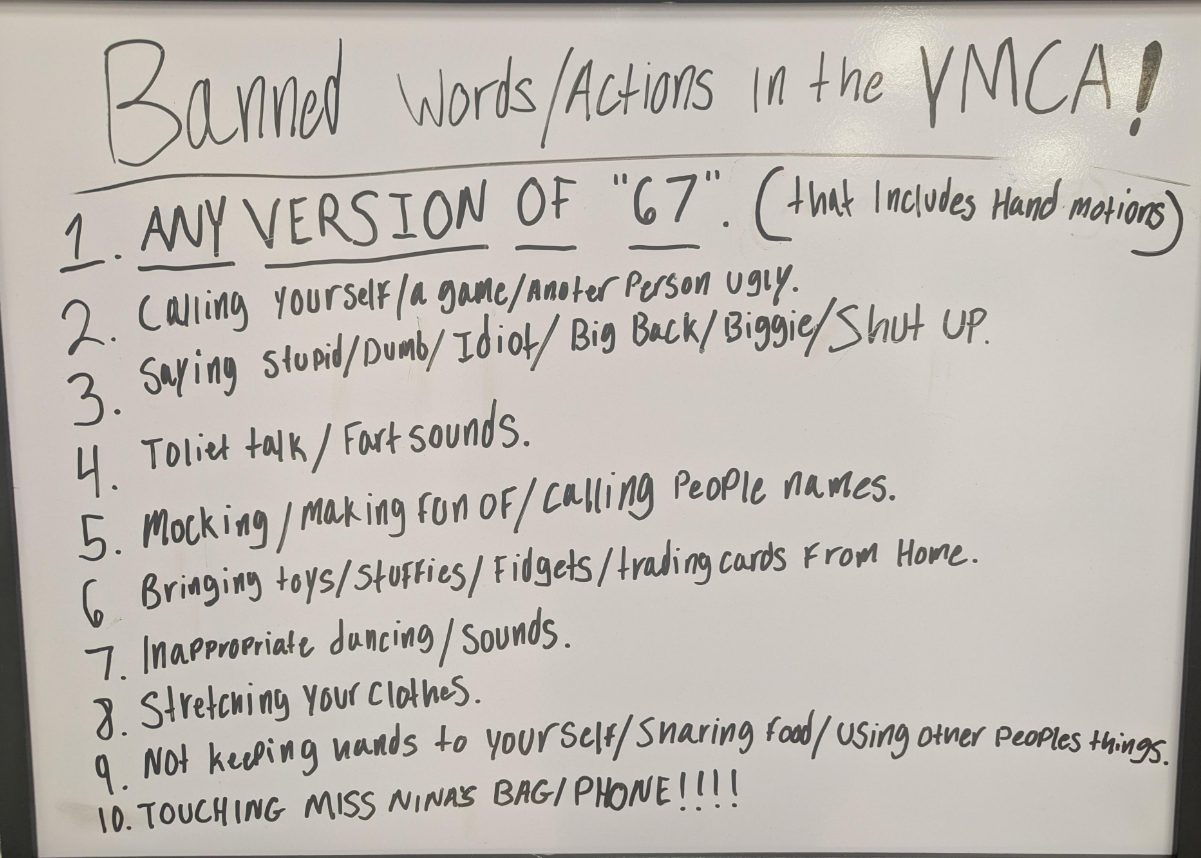 Banned Words/Actions in the YMCA!
1. ANY VERSION OF "67". (that Includes Hand motions)
2. Calling yourself/a game/Anoter Person ugly.
3. Saying Stupid/Dumb/Idiot/Big Back/Biggie/Shut UP.
4. Toliet talk/Fart sounds.
5. Mocking/Making fun OF/calling PeoPle names.
6 Bringing toys/stuffies/Fidgets/trading cards From Home.
7. Inappropriate dancing/Sounds.
8. Stretching Your Clothes.
9. Not keeping hands to yourself/Sharing food/using other PeoPles things.
10. TOUCHING MISS NINA'S BAG/PHONE!!!!